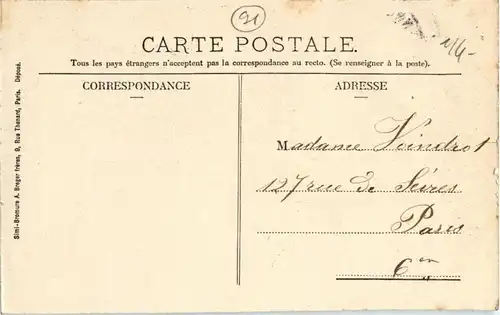 91
1/4-
CARTE POSTALE.
Tous les pays étrangers n'acceptent pas la correspondance au recto. (Se renseigner à la poste).
CORRESPONDANCE
ADRESSE
Madame Voindrot
127 rue de Sèvres
Paris
6en
Simi-Bromure A. Breger frères, 9, Rue Thénard, Paris. Déposé.